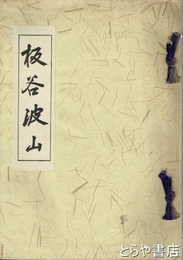 板谷波山
とらや書店